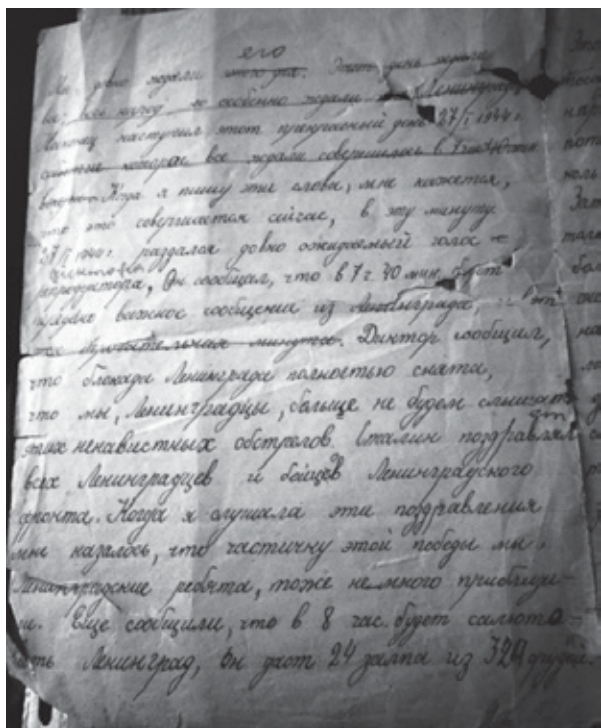 его
Мы давно ждали этого дня. Этот день ждали
все, весь народ, но особенно ждали Ленинградцы
Наконец наступил этот прекрасный день 27/I 1944 г.
событие которое все ждали совершилось в 7 час 40 мин
вечера. Когда я пишу эти слова, мне кажется,
что это совершается сейчас, в эту минуту.
27/I 1944 г. раздался давно ожидаемый голос
диктора
репродуктора, Он сообщил, что в 7 ч. 40 мин. будет
передано важное сообщение из Ленинграда, и вот
эта минута. Диктор сообщил,
что блокада Ленинграда полностью снята,
что мы, Ленинградцы, больше не будем слышать
этих ненавистных обстрелов. Сталин поздравлял
всех Ленинградцев и бойцов Ленинградского
фронта. Когда я слушала эти поздравления
мне казалось, что частичку этой победы мы,
Ленинградские ребята, тоже немного приблизи-
ли. Еще сообщили, что в 8 час. будет салюто-
вать Ленинград, Он даст 24 залпа из 324 орудий.